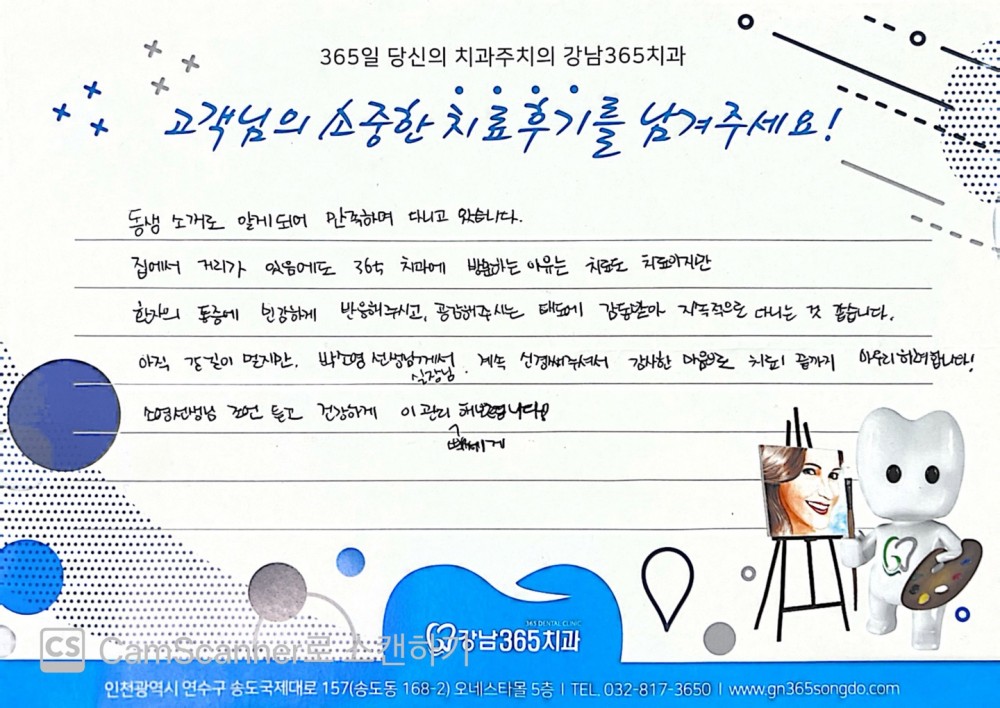 365일 당신의 치과주치의 강남365치과
고객님의 소중한 치료후기를 남겨주세요!
동생 소개로 알게되어 만족하며 다니고 왔습니다.
집에서 거리가 있음에도 365 치과에 방문하는 이유는 치료도 치료이지만
환자의 통증에 민감하게 반응해주시고, 공감해주시는 태도에 감동받아 지속적으로 다니는 것 같습니다.
아직 갈길이 멀지만, 박소영 선생님께서 계속 신경써주셔서 감사한 마음으로 치료 끝까지 마무리하려합니다!
실장님
소영선생님 조언 듣고 건강하게 이 관리 해보렵니다!
빡세게
365 DENTAL CLINIC
강남365치과
CS CamScanner로 스캔하기
인천광역시 연수구 송도국제대로 157(송도동 168-2) 오네스타몰 5층 | TEL. 032-817-3650 | www.gn365songdo.com